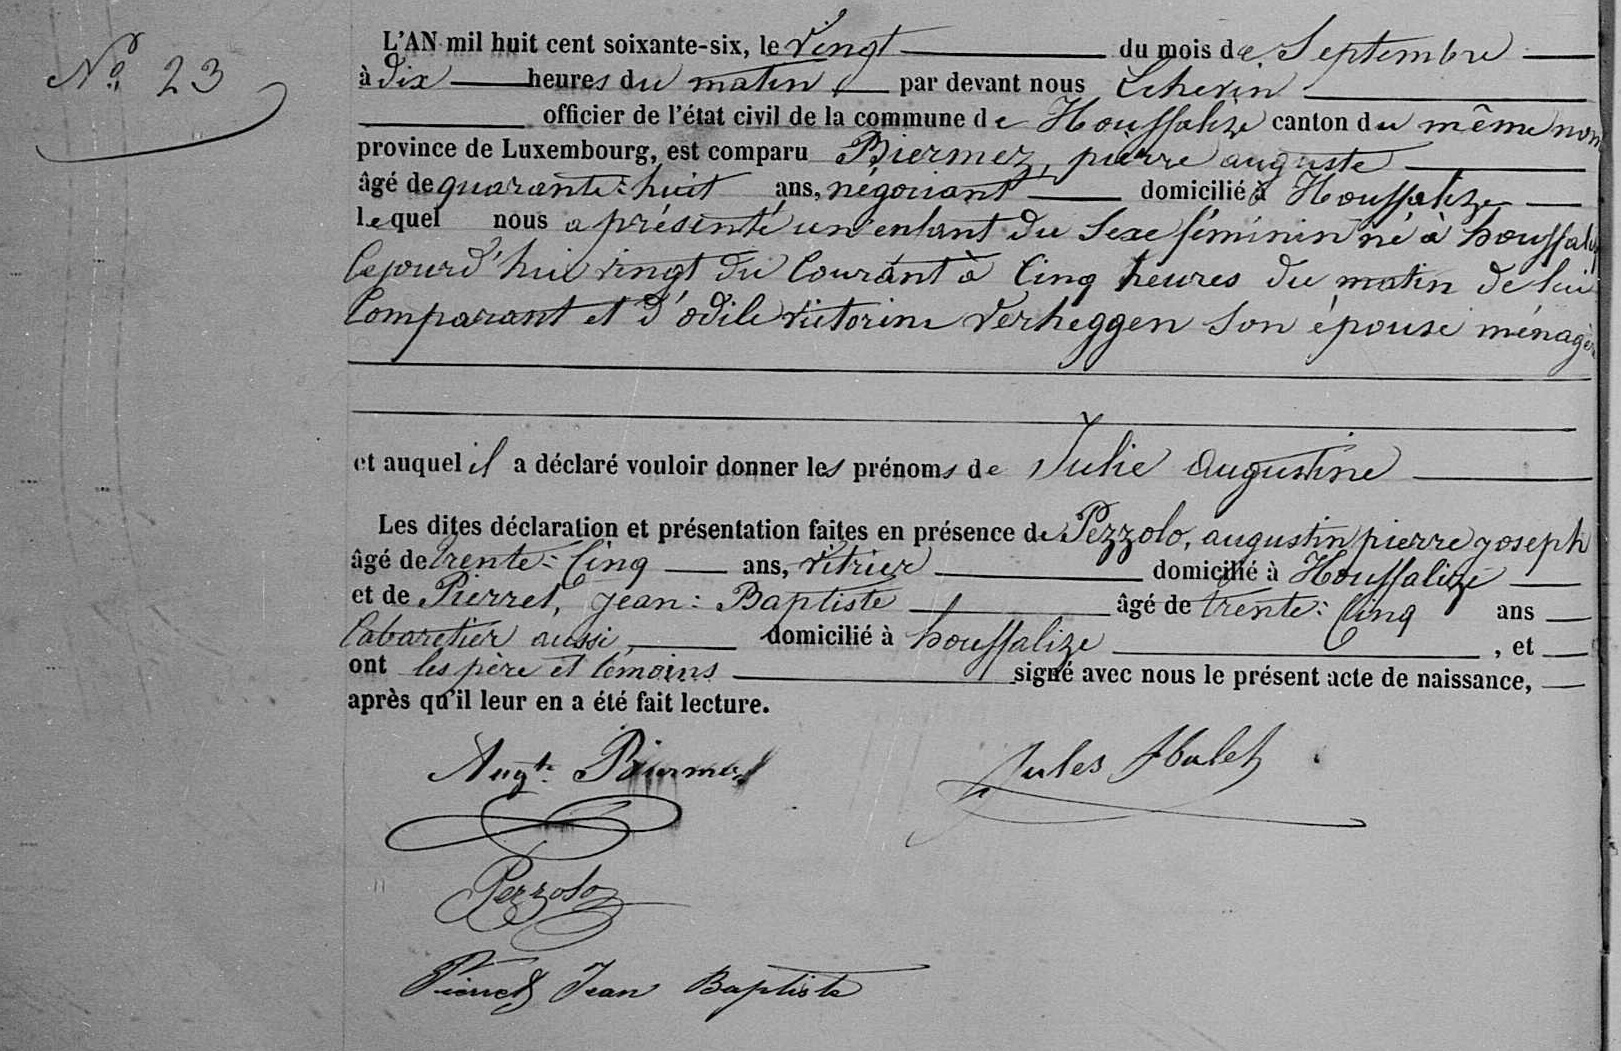 No. 23
L'AN mil huit cent soixante-six, le vingt du mois de Septembre
à dix heures du matin, par devant nous Echevin
officier de l'état civil de la commune de Houffalize canton du même nom
province de Luxembourg, est comparu Biermez, pierre auguste
âgé de quarante-huit ans, négociant domicilié à Houffalize
lequel nous a présenté un enfant du Sexe féminin né à houffalize
Cejourd'hui vingt du Courant à Cinq heures du matin de lui
Comparant et d'odile victorine Verheggen son épouse ménagère
et auquel il a déclaré vouloir donner les prénoms de Julie Augustine
Les dites déclaration et présentation faites en présence de Pezzolo, augustin pierre joseph
âgé de trente-Cinq ans, vitrier domicilié à Houffalize
et de Pierret, jean-Baptiste âgé de trente-Cinq ans
Cabaretier aussi, domicilié à houffalize, et
ont les père et témoins signé avec nous le présent acte de naissance,
après qu'il leur en a été fait lecture.
Augte Biermez Jules
Pezzolo
Pierret Jean Baptiste